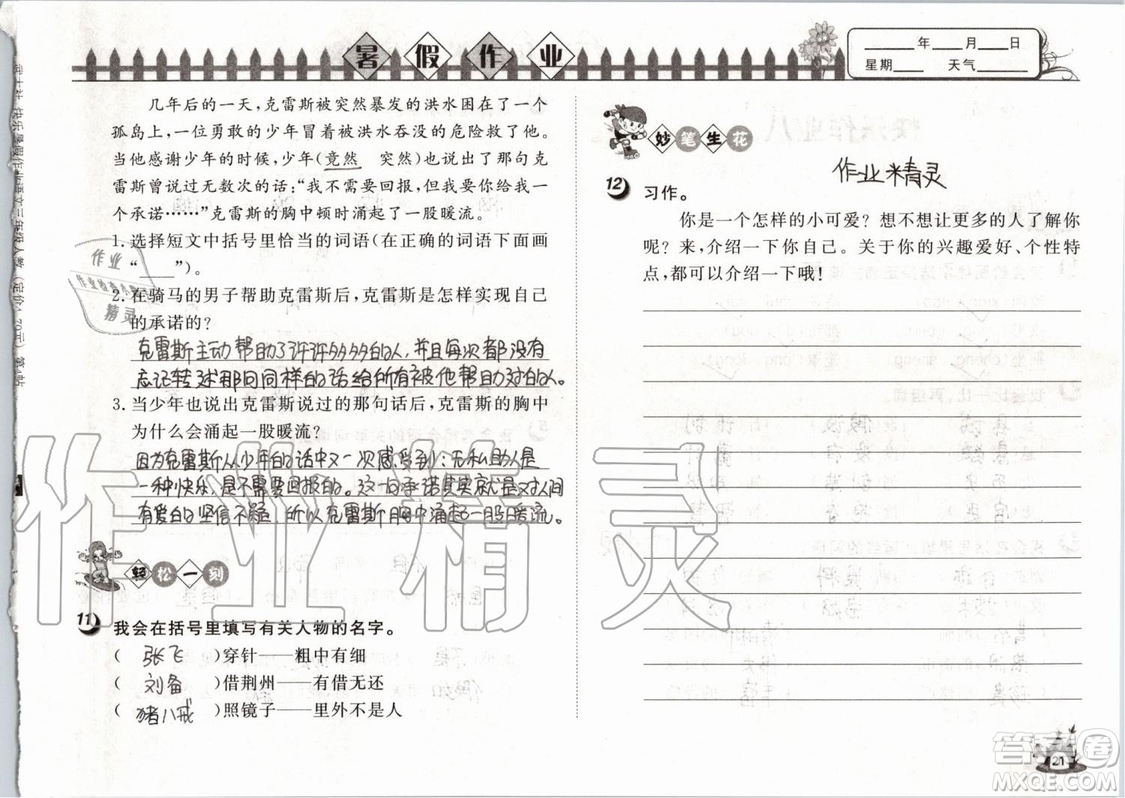 暑假作业
____年____月____日
星期____ 天气____
几年后的一天，克雷斯被突然暴发的洪水困在了一个
孤岛上，一位勇敢的少年冒着被洪水吞没的危险救了他。
当他感谢少年的时候，少年（竟然 突然）说出了那句克
雷斯说过无数次的话：“我不需要回报，但我要你给我一
个承诺……”克雷斯的胸中顿时涌起了一股暖流。
1. 选择短文中括号里恰当的词语（在正确的词语下面画
“____”）。
2. 在骑马的男子帮助克雷斯后，克雷斯是怎样实现自己
的承诺的？
克雷斯主动帮助了许许多多的人，并且每次都没有
忘记转述那同样的话给所有被他帮助过的人。
3. 当少年也说出克雷斯说过的那句话后，克雷斯的胸中
为什么会涌起一股暖流？
因为克雷斯从少年的话中又一次感受到：无私助人是
一种快乐，是不需要回报的。这一句承诺其实就是对人间
有爱的坚信不疑，所以克雷斯胸中涌起一股暖流。
轻松一刻
11 我会在括号里填写有关人物的名字。
（ 张飞 ）穿针——粗中有细
（ 刘备 ）借荆州——有借无还
（ 猪八戒 ）照镜子——里外不是人
妙笔生花
作业精灵
12 习作。
你是一个怎样的小可爱？想不想让更多的人了解你
呢？来，介绍一下你自己。关于你的兴趣爱好、个性特
点，都可以介绍一下哦！
作业精灵
21
答案圈
MXQE.COM